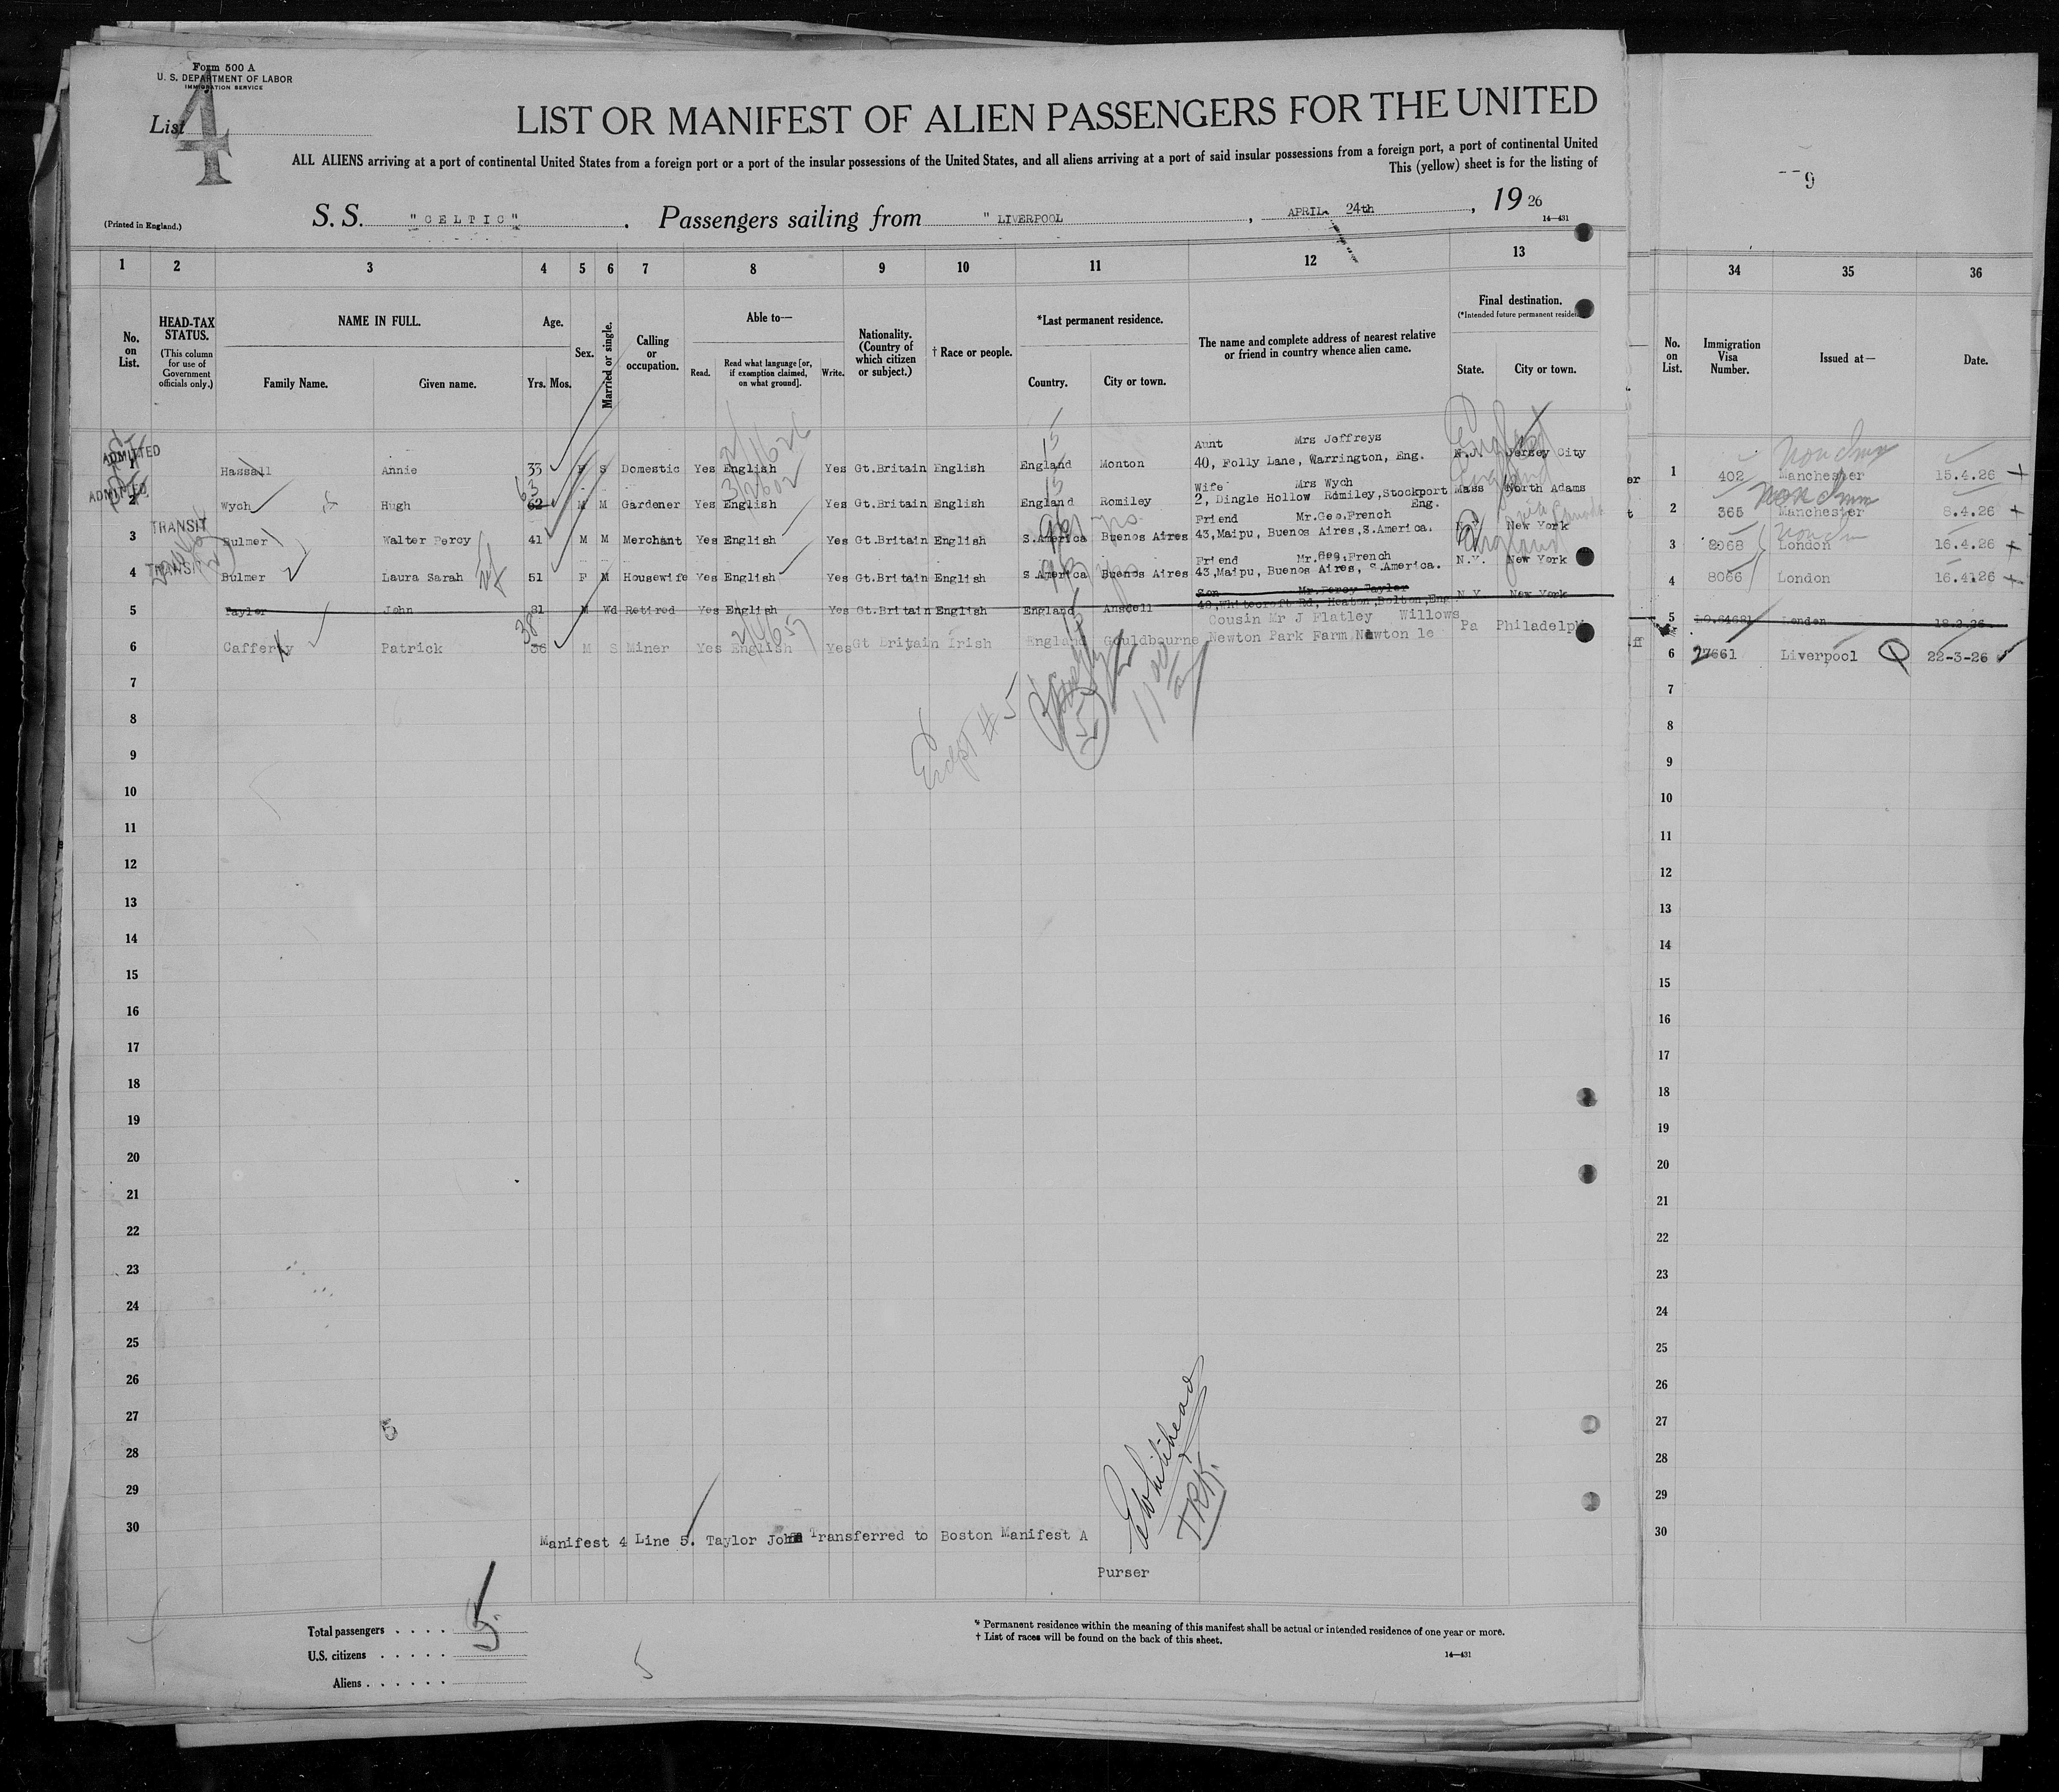 Form 500 A
U. S. DEPARTMENT OF LABOR
IMMIGRATION SERVICE
List 4
LIST OR MANIFEST OF ALIEN PASSENGERS FOR THE UNITED
ALL ALIENS arriving at a port of continental United States from a foreign port or a port of the insular possessions of the United States, and all aliens arriving at a port of said insular possessions from a foreign port, a port of continental United
This (yellow) sheet is for the listing of
9
(Printed in England.)
S. S. "CELTIC". Passengers sailing from "LIVERPOOL, APRIL 24th, 1926
14—431
1 2 3 4 5 6 7 8 9 10 11 12 13 34 35 36
No. on List.
HEAD-TAX STATUS.
(This column for use of Government officials only.)
NAME IN FULL.
Family Name. Given name.
Age.
Yrs. Mos.
Sex.
Married or single.
Calling or occupation.
Able to—
Read. Read what language [or, if exemption claimed, on what ground]. Write.
Nationality. (Country of which citizen or subject.)
† Race or people.
*Last permanent residence.
Country. City or town.
The name and complete address of nearest relative or friend in country whence alien came.
Final destination.
(*Intended future permanent residen
State. City or town.
No. on List.
Immigration Visa Number.
Issued at—
Date.
ADMITTED
Aunt Mrs Jeffreys
1 Hassall Annie 33 F S Domestic Yes English Yes Gt.Britain English England Monton 40, Folly Lane, Warrington, Eng. N.J. Jersey City 1 402 Manchester 15.4.26
ADMITTED
63
Wife Mrs Wych
2 Wych Hugh 62 M M Gardener Yes English Yes Gt.Britain English England Romiley 2, Dingle Hollow Romiley,Stockport Eng. Mass North Adams 2 365 Manchester 8.4.26
TRANSIT
Friend Mr.Geo.French
3 Bulmer Walter Percy 41 M M Merchant Yes English Yes Gt.Britain English S.America Buenos Aires 43,Maipu, Buenos Aires,S.America. New York 3 8068 London 16.4.26
TRANSIT
Friend Mr.Geo.French
4 Bulmer Laura Sarah 51 F M Housewife Yes English Yes Gt.Britain English S America Buenos Aires 43,Maipu, Buenos Aires, S.America. N.Y. New York 4 8066 London 16.4126
Son Mr.Percy Taylor
5 Taylor John 81 M Wd Retired Yes English Yes Gt.Britain English England Ansdell 40,Whitecroft Rd, Heaton,Bolton,Eng N Y New York 5 London 18.3.26.
38
Cousin Mr J Flatley Willows
6 Cafferty Patrick 36 M S Miner Yes English Yes Gt Britain Irish England Gouldbourne Newton Park Farm Newton le Pa Philadelph 6 27661 Liverpool 22-3-26
7 7
8 8
9 9
10 10
11 11
12 12
13 13
14 14
15 15
16 16
17 17
18 18
19 19
20 20
21 21
22 22
23 23
24 24
25 25
26 26
27 27
28 28
29 29
30 30
Except # 5
5
EWhitehead
Manifest 4 Line 5. Taylor John Transferred to Boston Manifest A
Purser
Total passengers . . . . 5
U.S. citizens . . . . .
Aliens . . . . . .
5
* Permanent residence within the meaning of this manifest shall be actual or intended residence of one year or more.
† List of races will be found on the back of this sheet.
14—431